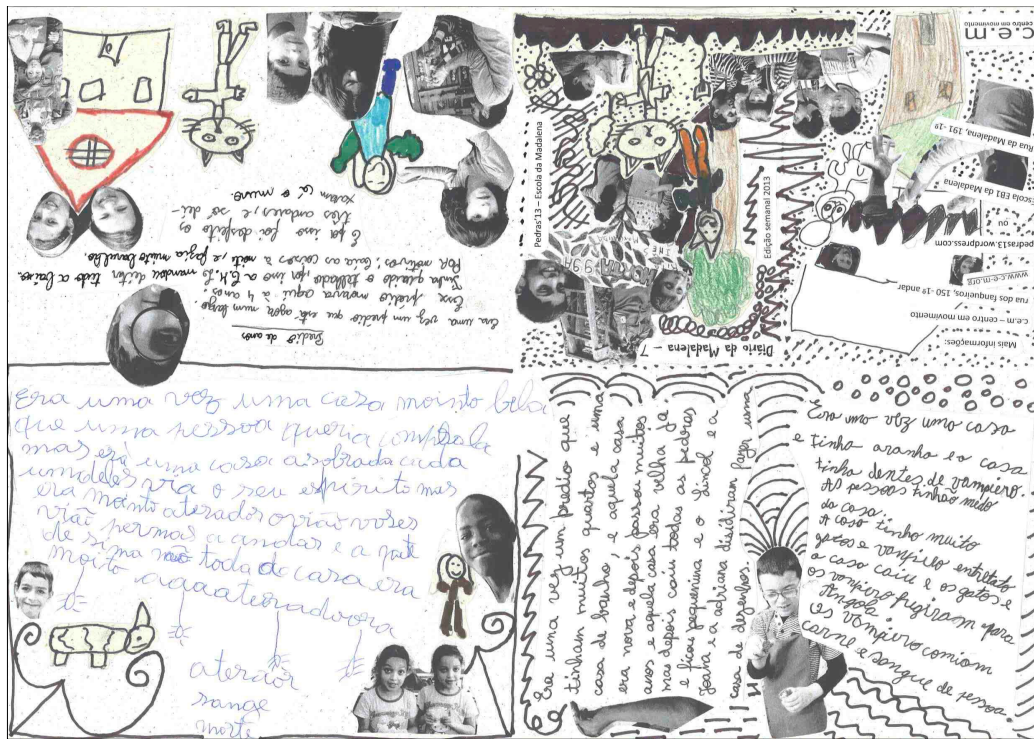 Diário da Madalena – 7
Edição semanal 2013
Pedras'13 – Escola da Madalena
Mais informações:
c.e.m – centro em movimento
rua dos fanqueiros, 150 -1º andar
www.c-e-m.org
pedras13.wordpress.com
ou
Escola EB1 da Madalena
Rua da Madalena, 191 -1º
c.e.m
centro em movimento
Predio de anos
Era uma vez um predio que está agora num largo.
Esse predio morava aqui à 4 anos.
Tinha o telhado, por isso a C.M.L. mandou deitar tudo a baixo.
POR motivos, caía as coisas à noite e fazia muito barulho.
E por isso foi desfeito os
tres andares, e só dei-
xaram lé o muro
Era uma vez uma casa mointo bela
que uma pessoa queria comprala
mas era uma casa asobrada cada
umdeles via o seu espirito mas
era mointo aterador ovião voses
vião pernas a andar e a parte
de sima toda da casa era
moito
aterdor
sange
morte
Era uma vez um predio que
tinham muitos quartos e uma
casa de banho e aquela casa
era nova e depois passou muitos
anos e aquela casa era velha já
mas depois caiu todas as pedras
e ficou pequenina e o dinol e a
joana e a adriana disidiram fazer uma
casa de desenhos.
Era uma vez uma casa
e tinha aranha e a casa
tinha dentes de vampiero.
As pessoas tinhão medo
da casa.
A casa tinha muito
gatos e vampiro entretado
a casa caiu e os gatos e
os vampiro fugiram para
Angola
os vampiro comiam
carne e sangue de pessoa